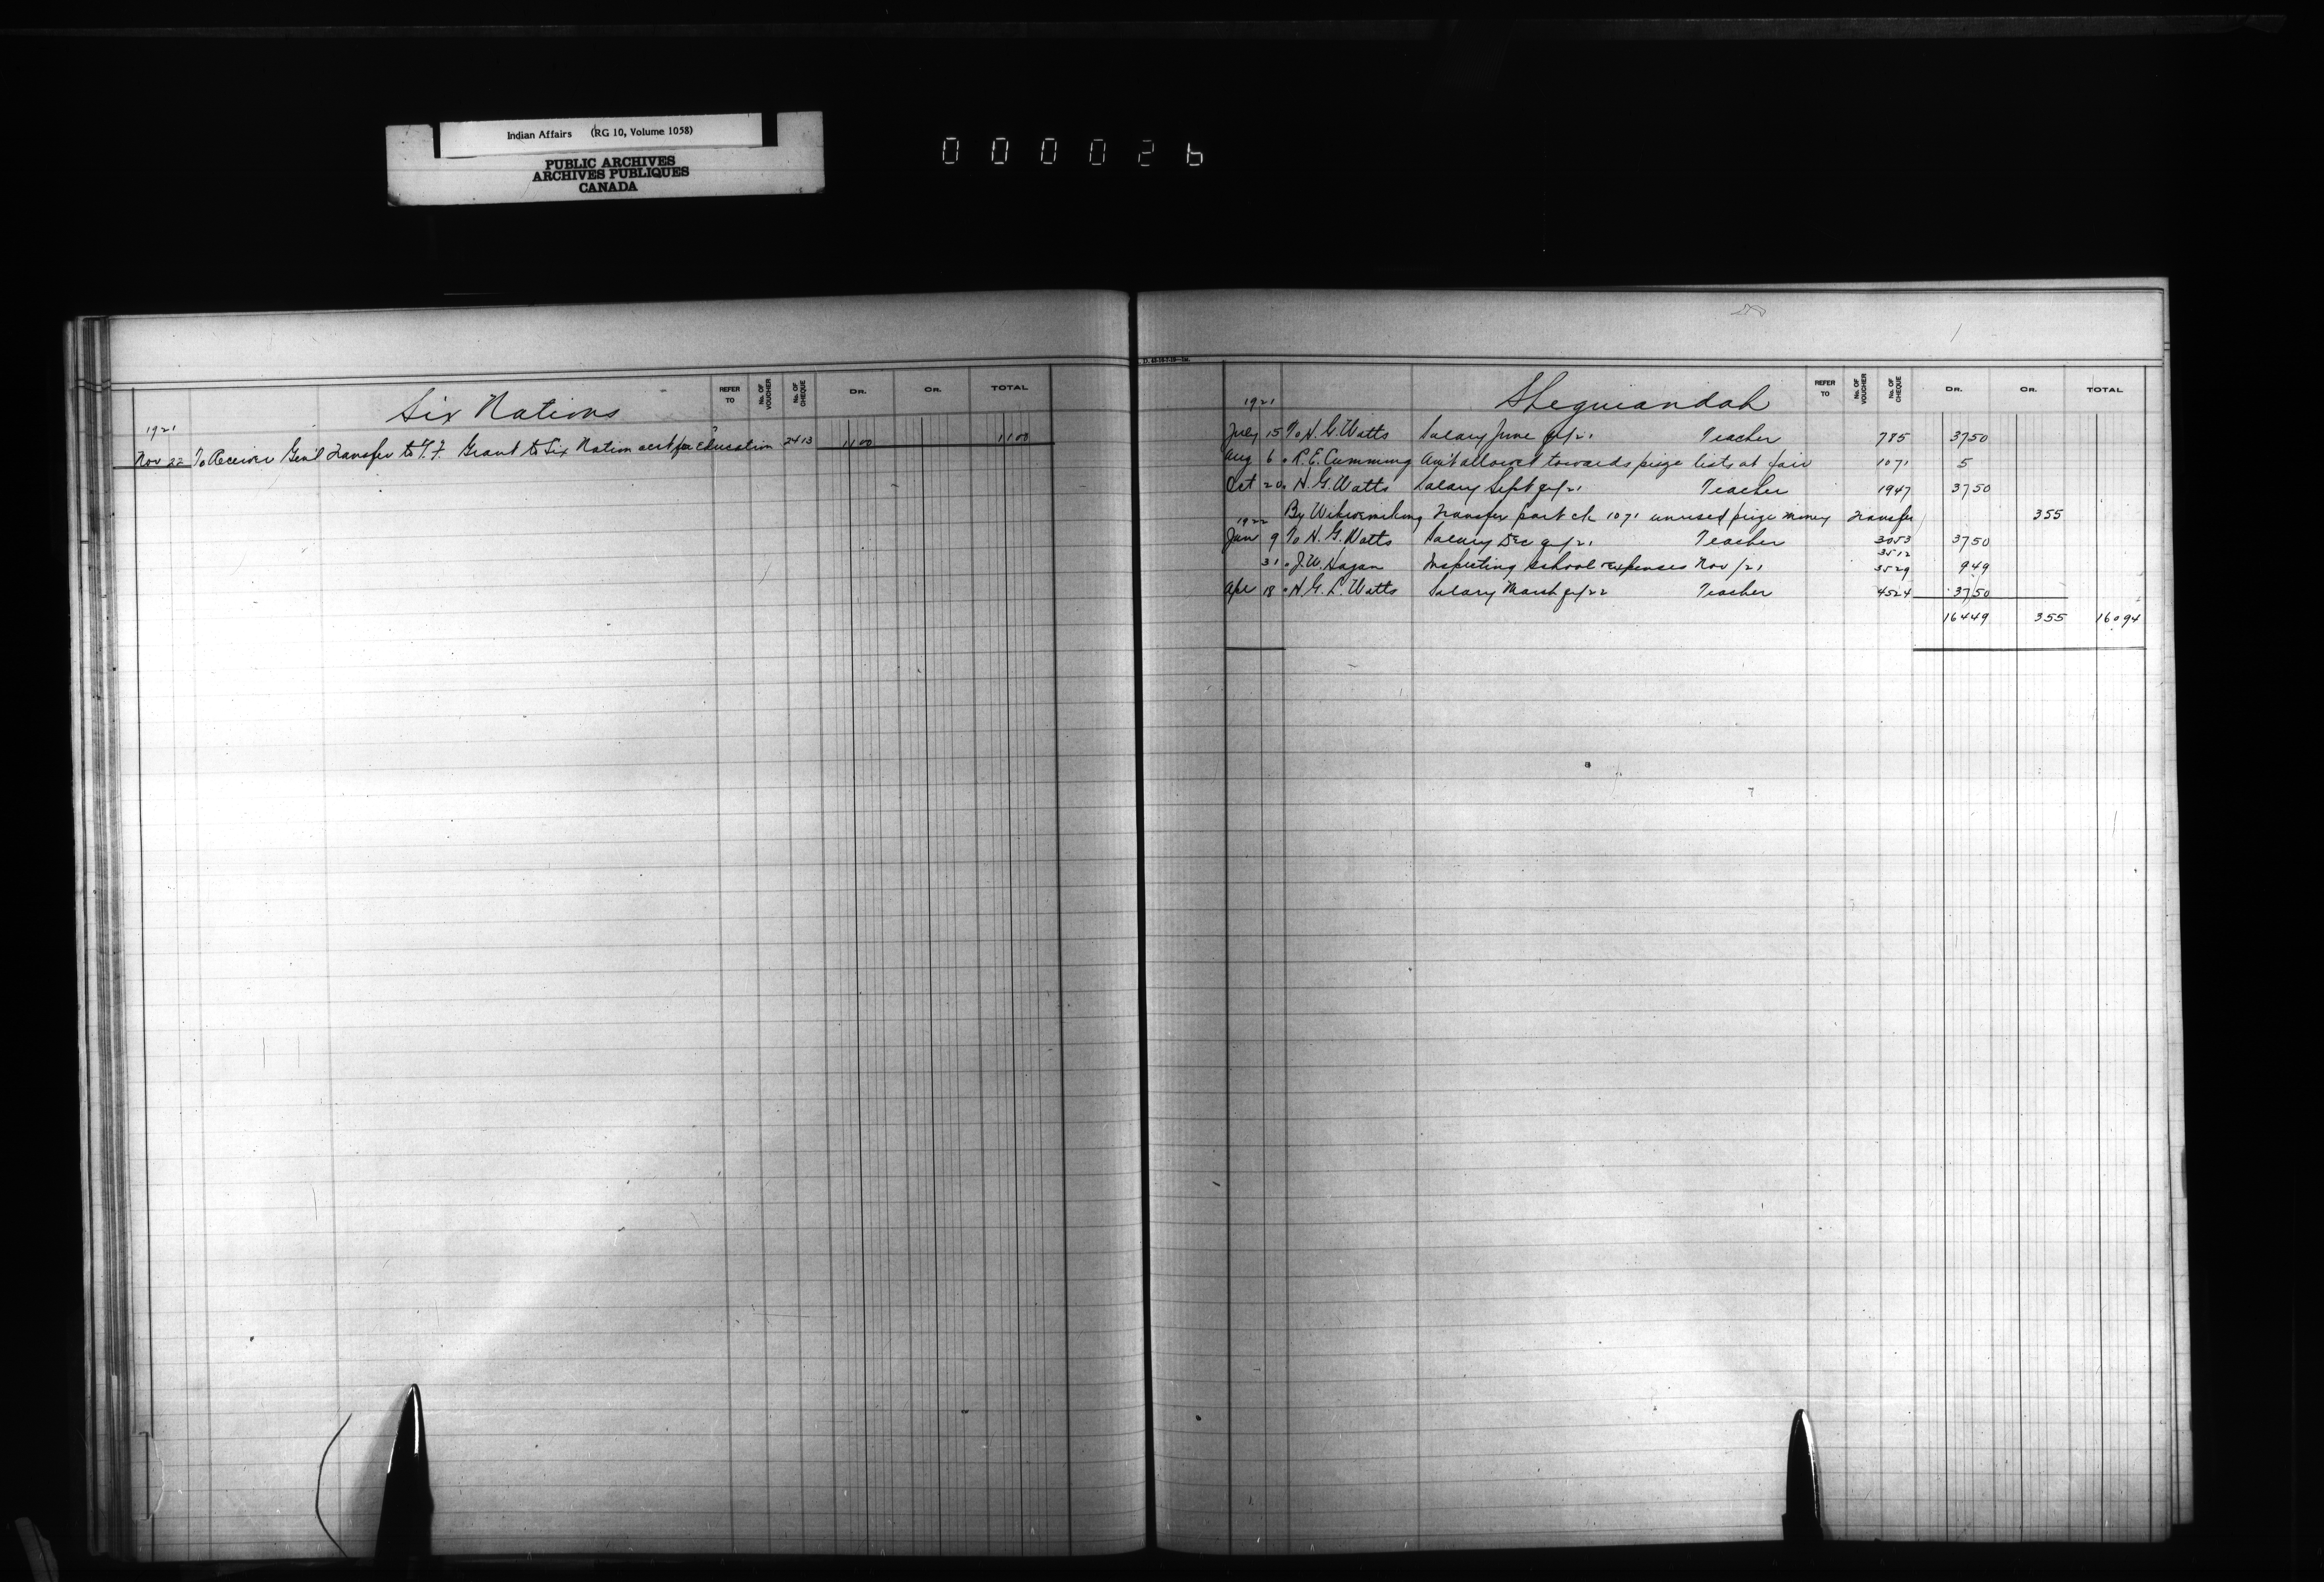 Indian Affairs (RG 10, Volume 1058)
PUBLIC ARCHIVES
ARCHIVES PUBLIQUES
CANADA
000026
Six Nations
REFER TO No. OF VOUCHER No. OF CHEQUE DR. CR. TOTAL
1921
Nov 22 To Receiver Gen'l Transfer to T.F. Grant to Six Nation acct for Education 2413 1100 1100
Sheguiandah
REFER TO No. OF VOUCHER No. OF CHEQUE DR. CR. TOTAL
1921
July 15 To H. G. Watts Salary June qr/21 Teacher 785 3750
Aug 6 " R. E. Cumming Am't allowed towards prize lists at fair 1071 5
Oct 20 " H. G. Watts Salary Sept qr/21 Teacher 1947 3750
By Wikwemikong Transfer part ch 1071 unused prize money Transfer 355
1922
Jan 9 To H. G. Watts Salary Dec qr/21 Teacher 3053 3750
3512
31 " J. W. Hagan Inspecting school expenses Nov/21 3529 949
Apr 18 " H. G. L. Watts Salary March qr/22 Teacher 4524 3750
16449 355 16094